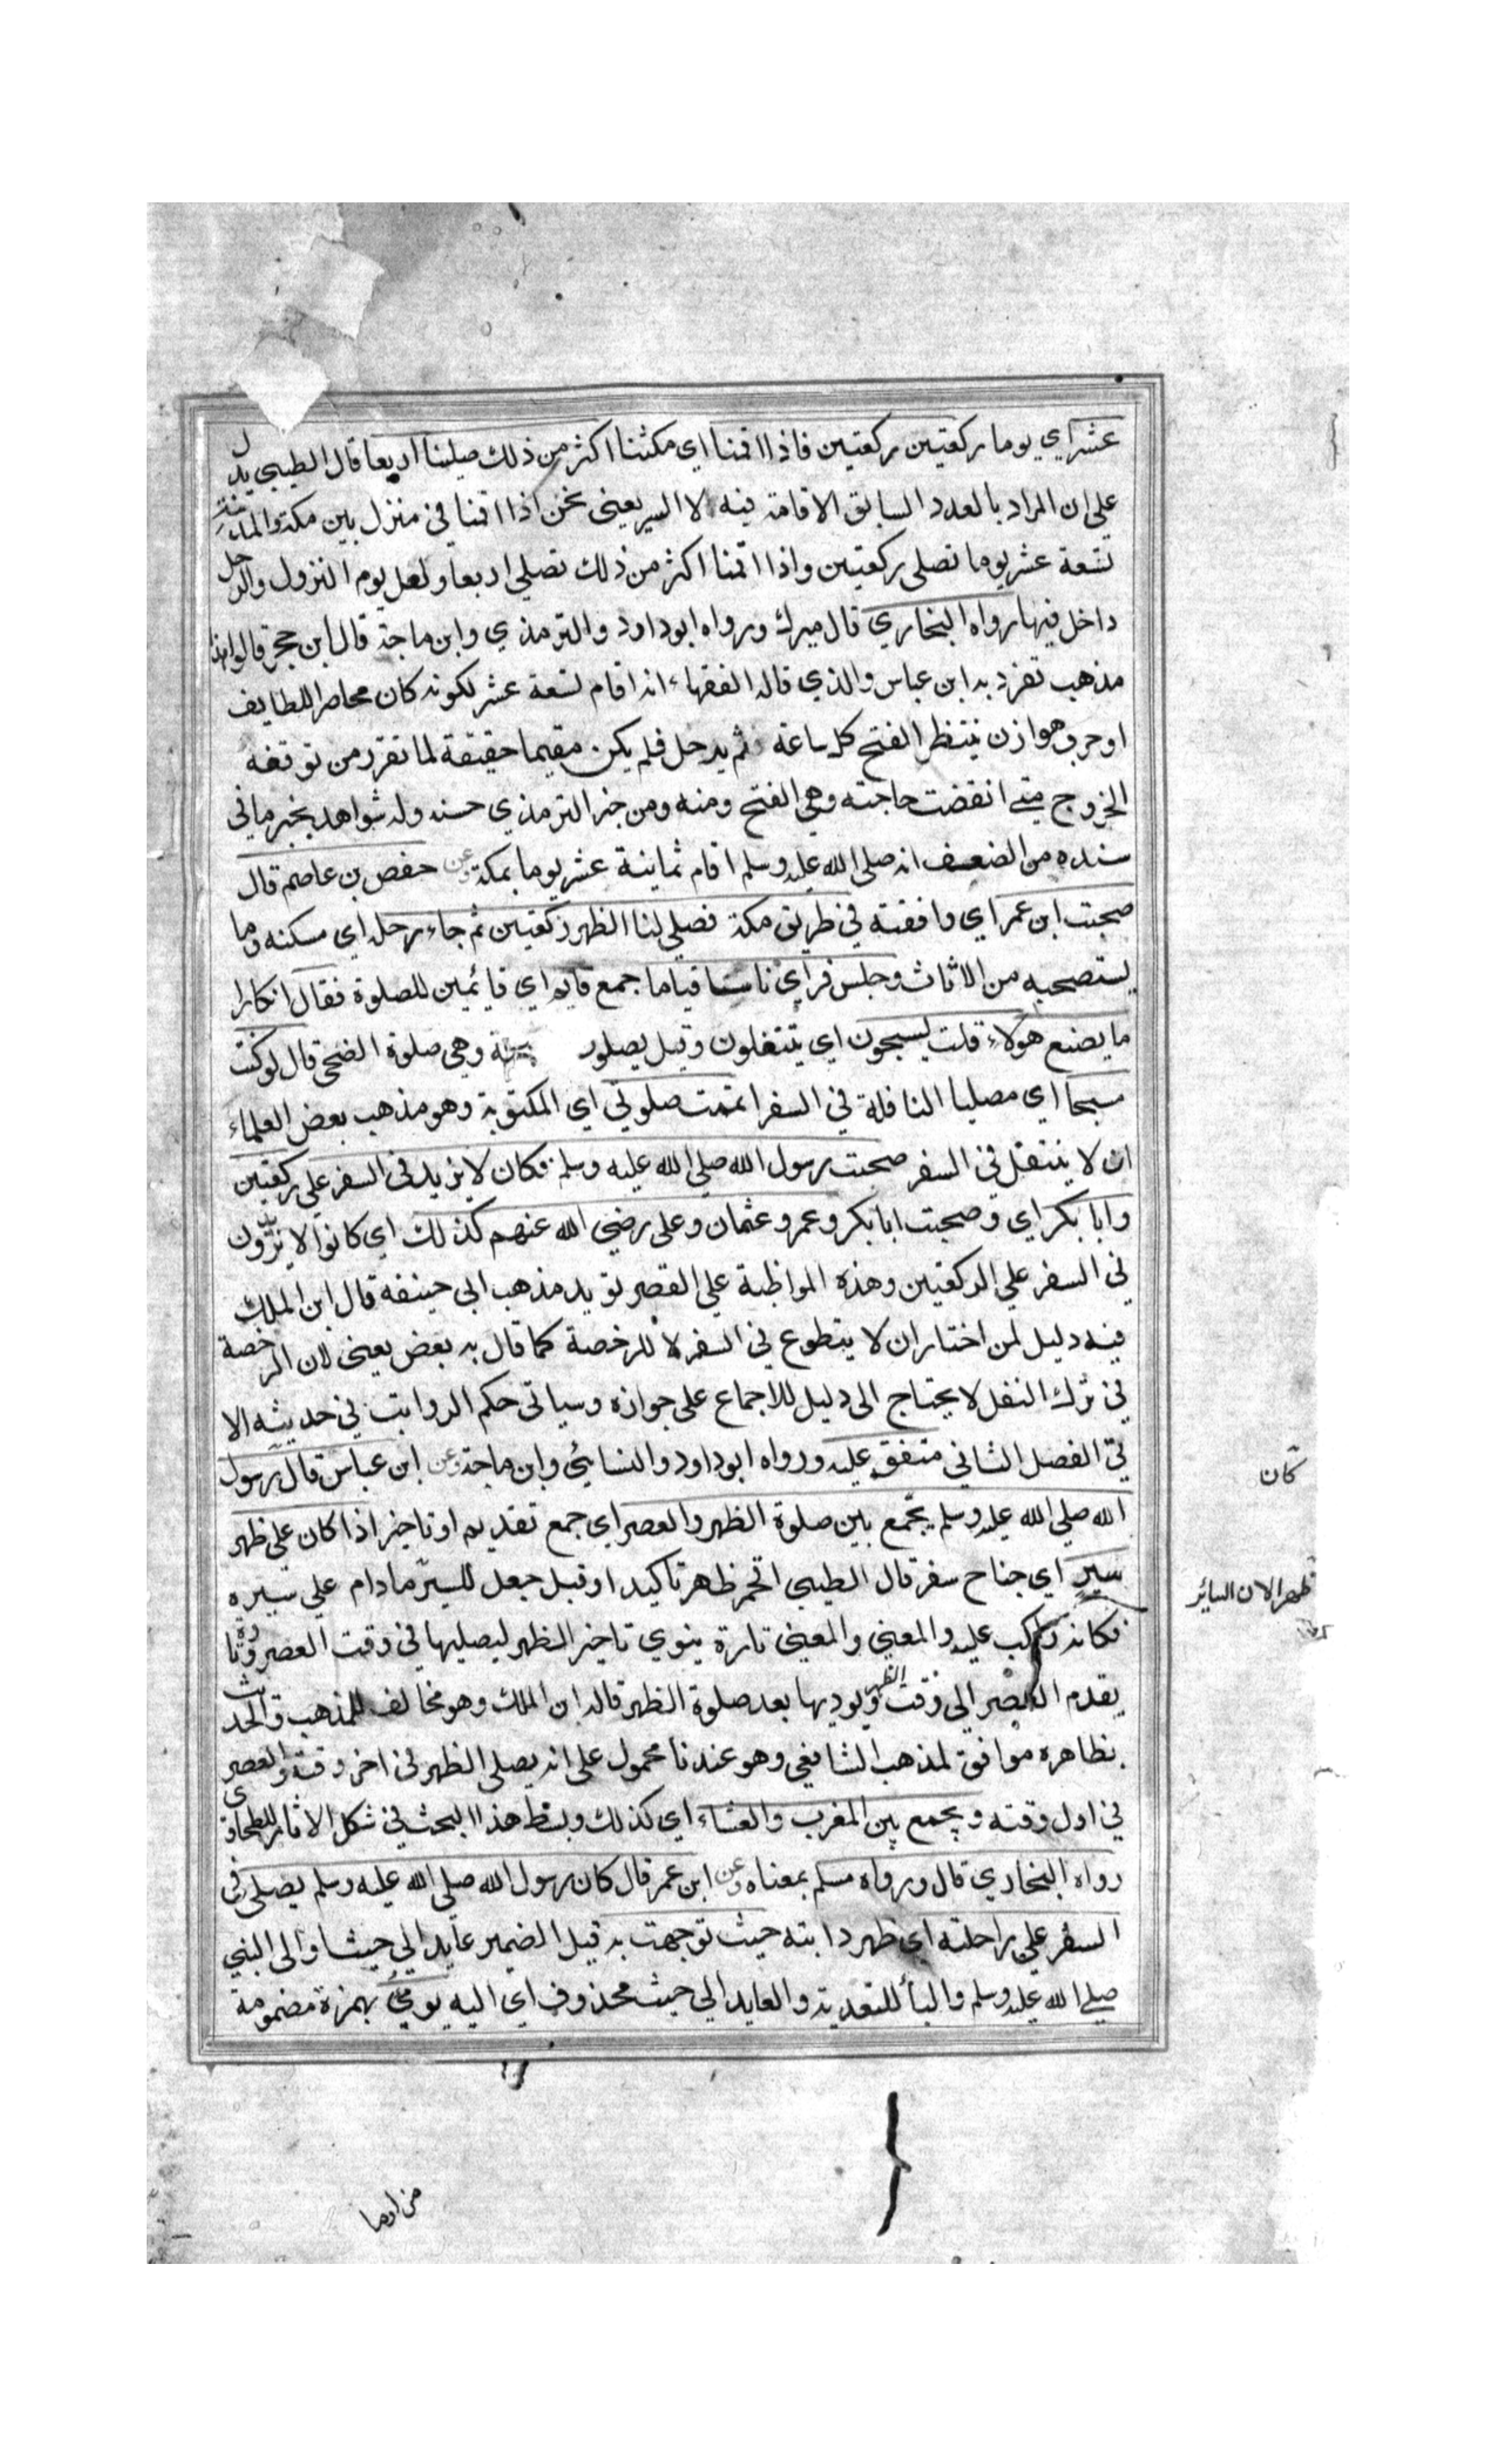 عشر اي يوما ركعتين ركعتين فاذا اقمنا اي مكثنا اكثر من ذلك صلينا اربعا قال الطيبي يدل
على ان المراد بالعدد السابق الاقامة فيه لا السير يعني نحن اذا اقمنا في منزل بين مكة والمدينة
تسعة عشر يوما نصلى ركعتين واذا اقمنا اكثر من ذلك نصلي اربعا ولعل يوم النزول والرحل
داخل فيها رواه البخاري قال ميرك ورواه ابوداود والترمذي وابن ماجة قال ابن حجر قالوا هذا
مذهب تفرد به ابن عباس والذي قاله الفقهاء انه اقام تسعة عشر لكونه كان محاصر اللطايف
او حرب هوازن ينتظر الفتح كل ساعة ثم يرحل فلم يكن مقيما حقيقة لما تقرر من توقفه
الخروج متى انقضت حاجته وهي الفتح ومنه ومن خبر الترمذي حسنه وله شواهد يخبر ما في
سنده من الضعف انه صلى الله عليه وسلم اقام ثمانية عشر يوما بمكة وعن حفص بن عاصم قال
صحبت ابن عمر اي وافقته في طريق مكة فصلى لنا الظهر ركعتين ثم جاء رحله اي مسكنه وما
يستصحبه من الاثاث وجلس فراي ناسا قياما جمع قايم اي قائمين للصلوة فقال انكارا
ما يصنع هولاء قلت يسبحون اي يتنفلون وقيل يصلون وهي صلوة الضحى قال لو كنت
مسبحا اي مصليا النافلة في السفر اتممت صلوتي اي المكتوبة وهو مذهب بعض العلماء
ان لا يتنفل في السفر صحبت رسول الله صلي الله عليه وسلم فكان لا يزيد في السفر على ركعتين
وابا بكر اي وصحبت ابا بكر وعمر وعثمان وعلى رضي الله عنهم كذلك اي كانوا لا يزيدون
في السفر علي الركعتين وهذه المواظبة علي القصر تويد مذهب ابي حنيفة قال ابن الملك
فيه دليل لمن اختار ان لا يتطوع في السفر لا للرخصة كما قال به بعض يعني لان الرخصة
في ترك النفل لا يحتاج الى دليل للاجماع على جوازه وسياتي حكم الرواتب في حديثه الا
تي الفصل الثاني متفق عليه ورواه ابوداود والنسائي وابن ماجة وعن ابن عباس قال رسول
كان
الله صلي الله عليه وسلم يجمع بين صلوة الظهر والعصر اي جمع تقديم او تاخير اذا كان علي ظهر
سير اي جناح سفر قال الطيبي اقحم ظهر تاكيدا وقيل جعل للسير ما دام علي سيره
ظهرا لان السائر
فكانه راكب عليه والمعني والمعني تارة ينوي تاخير الظهر ليصليها في وقت العصر وتارة
يقدم العصر الى وقت الظهر ويوديها بعد صلوة الظهر قاله ابن الملك وهو مخالف للمذهب والحديث
بظاهره موافق لمذهب الشافعي وهو عندنا محمول على انه يصلى الظهر في اخر وقته والعصر
في اول وقته ويجمع بين المغرب والعشاء اي كذلك وبسط هذا البحث في شكل الاثار للطحاوي
رواه البخاري قال ورواه مسلم بمعناه وعن ابن عمر قال كان رسول الله صلي الله عليه وسلم يصلى في
السفر علي راحلته اي ظهر دابته حيث توجهت به قيل الضمير عايد الي حيث او الى النبي
صلي الله عليه وسلم والبأ للتعدية والعايد الي حيث محذوف اي اليه يومي بهمزة مضمومة